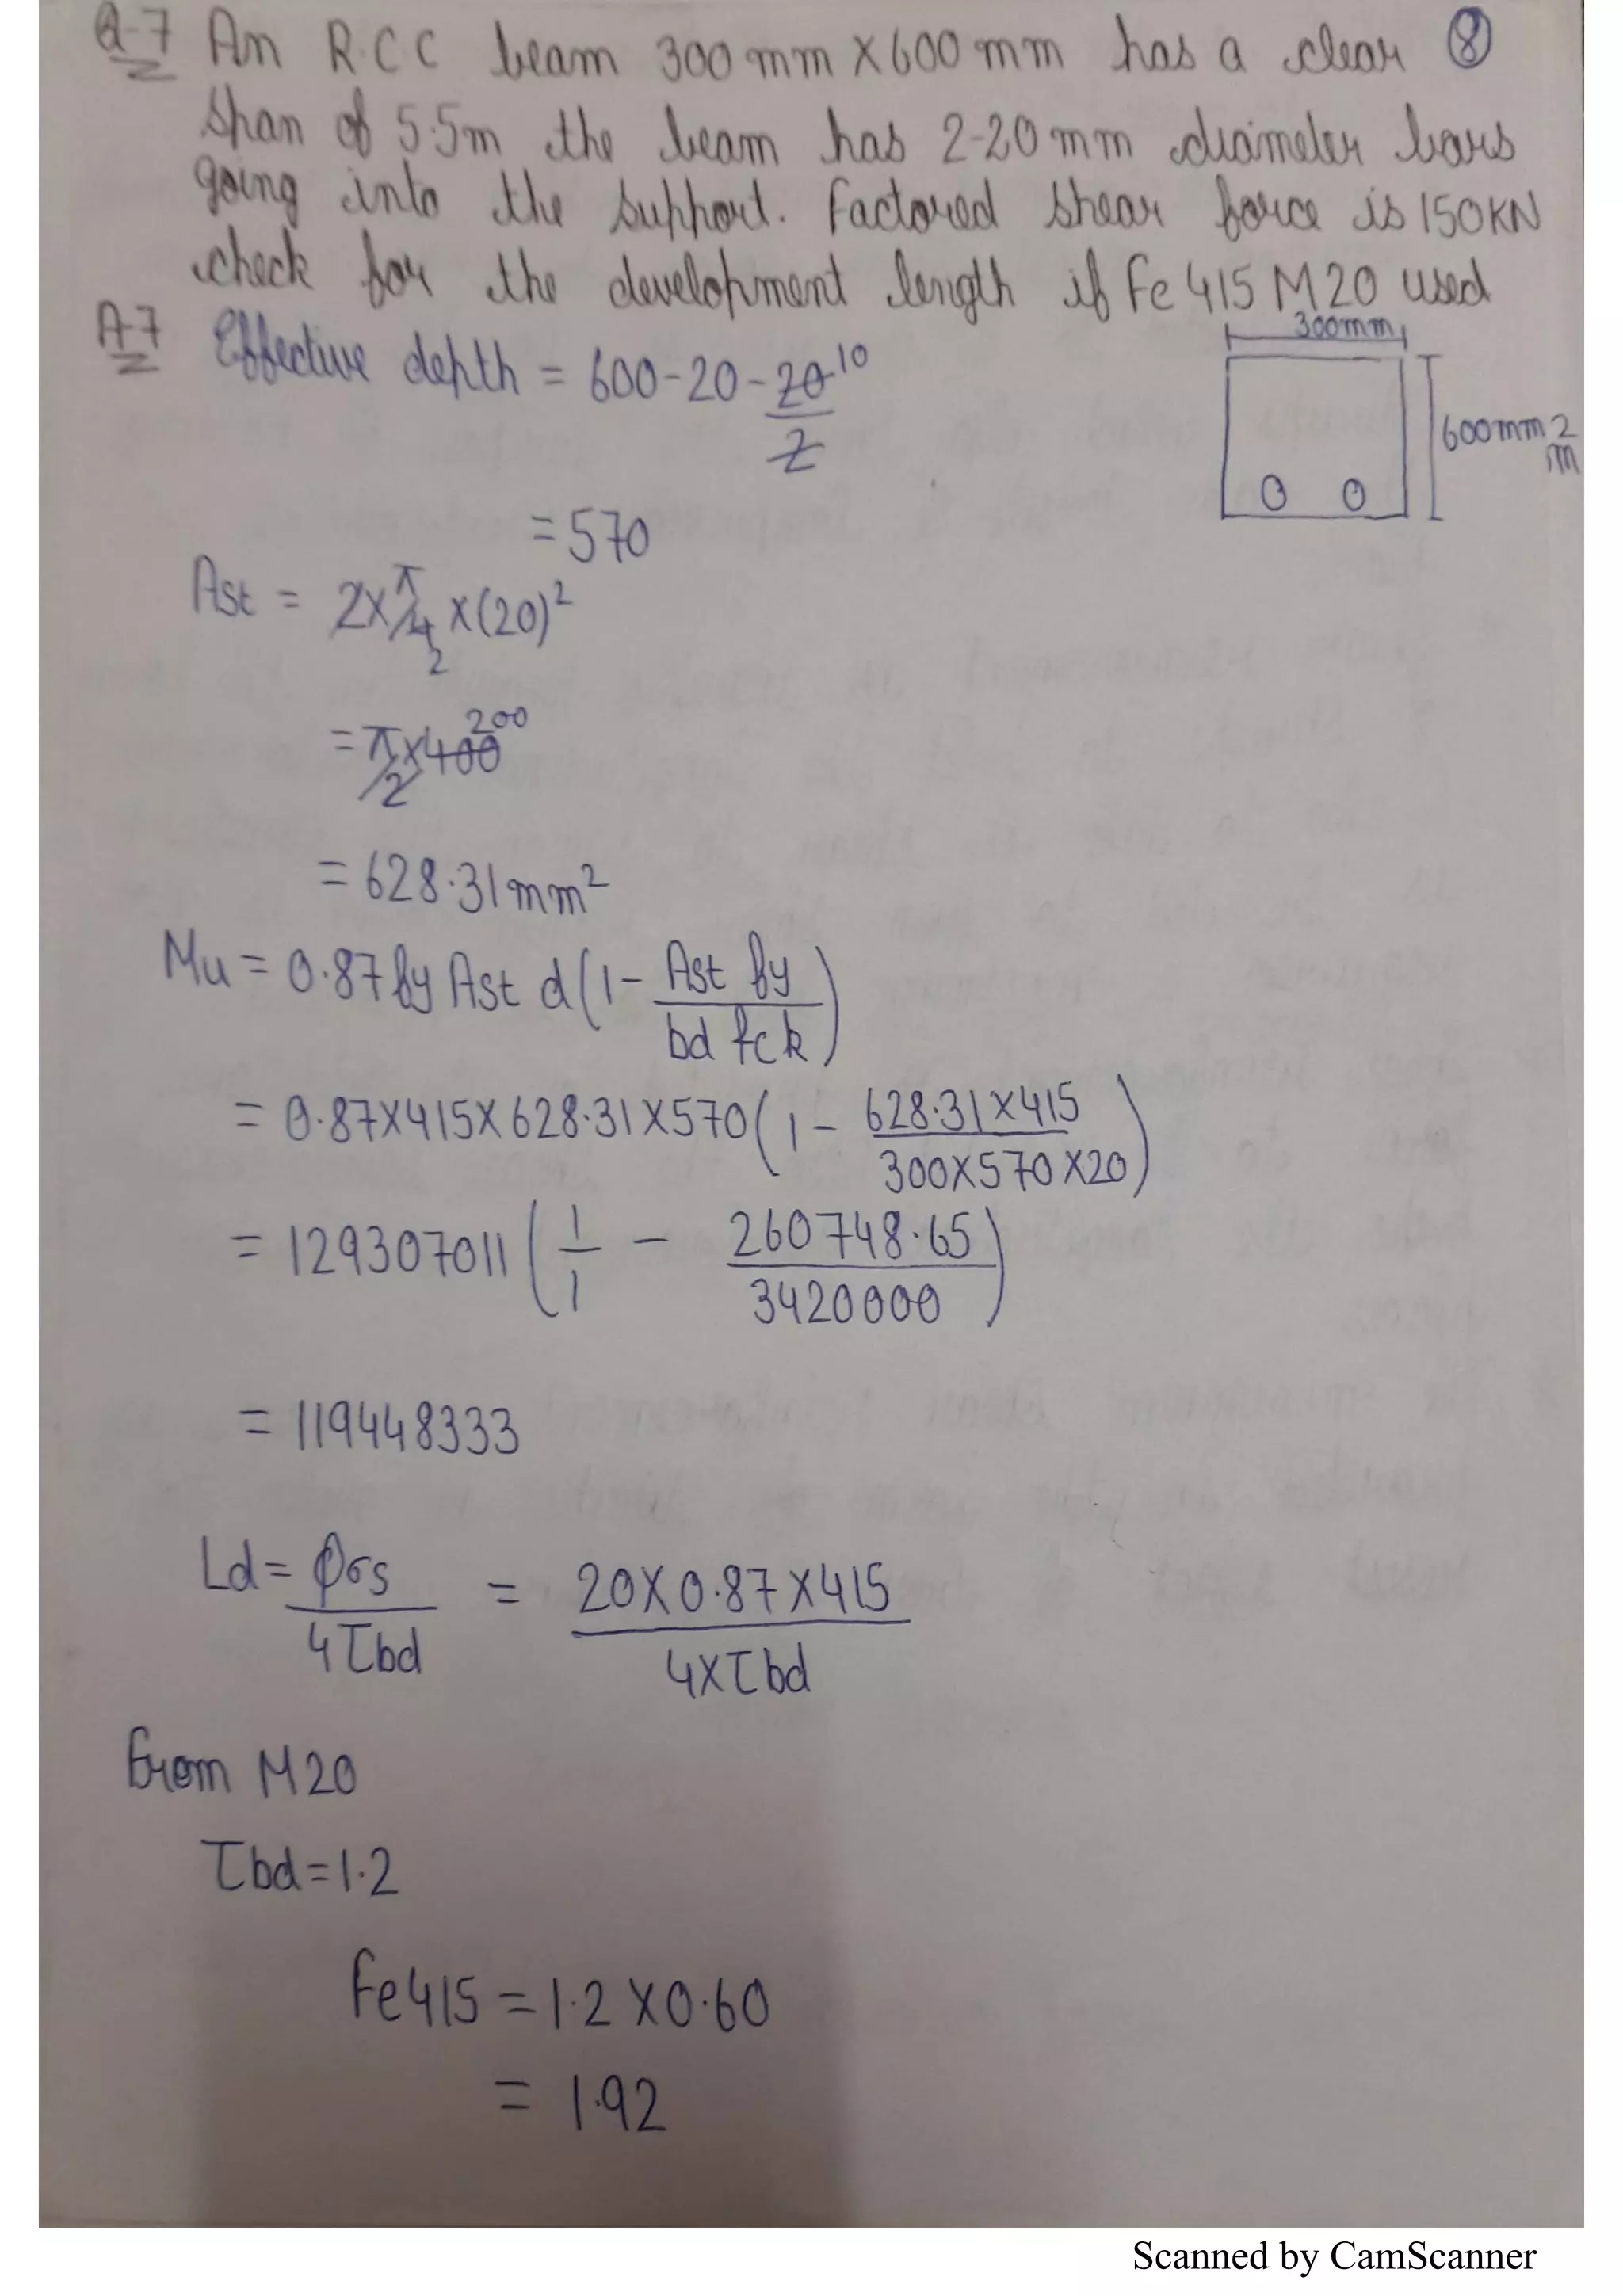 Q-7 An R.C.C beam 300mm x 600mm has a clear 8
span of 5.5m the beam has 2-20mm diameter bars
going into the support. Factored shear force is 150KN
check for the development length if Fe 415 M20 used
A-7 Effective depth = 600-20-20/2 10
300mm
600mm 2
m
= 570
Ast = 2x π/4 x(20)²
2
= π/2 x400 200
= 628.31mm²
Mu = 0.87 fy Ast d(1 - Ast fy / bd fck)
= 0.87x415x628.31x570(1 - 628.31x415 / 300x570x20)
= 129307011(1/1 - 260748.65 / 3420000)
= 119448333
Ld = φσs / 4τbd = 20x0.87x415 / 4xτbd
From M20
τbd = 1.2
Fe415 = 1.2x0.60
= 1.92
Scanned by CamScanner